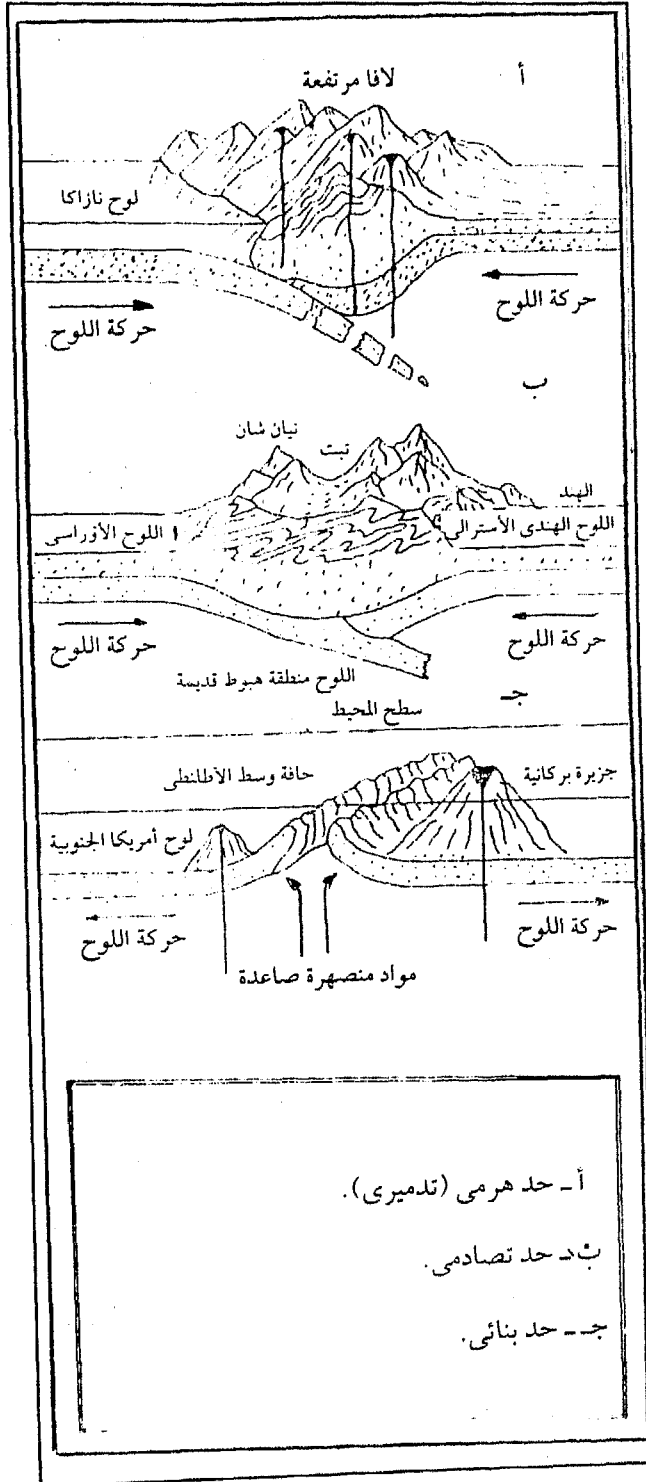 أ
لافا مرتفعة
لوح نازاكا
حركة اللوح
حركة اللوح
ب
تيان شان
تبت
الهند
اللوح الهندى الأسترالى
اللوح الأوراسى
حركة اللوح
حركة اللوح
اللوح منطقة هبوط قديمة
جـ
سطح المحيط
حافة وسط الأطلنطى
جزيرة بركانية
لوح أمريكا الجنوبية
حركة اللوح
حركة اللوح
مواد منصهرة صاعدة
أ ـ حد هرمى (تدميرى).
ب ـ حد تصادمى.
جـ ـ حد بنائى.